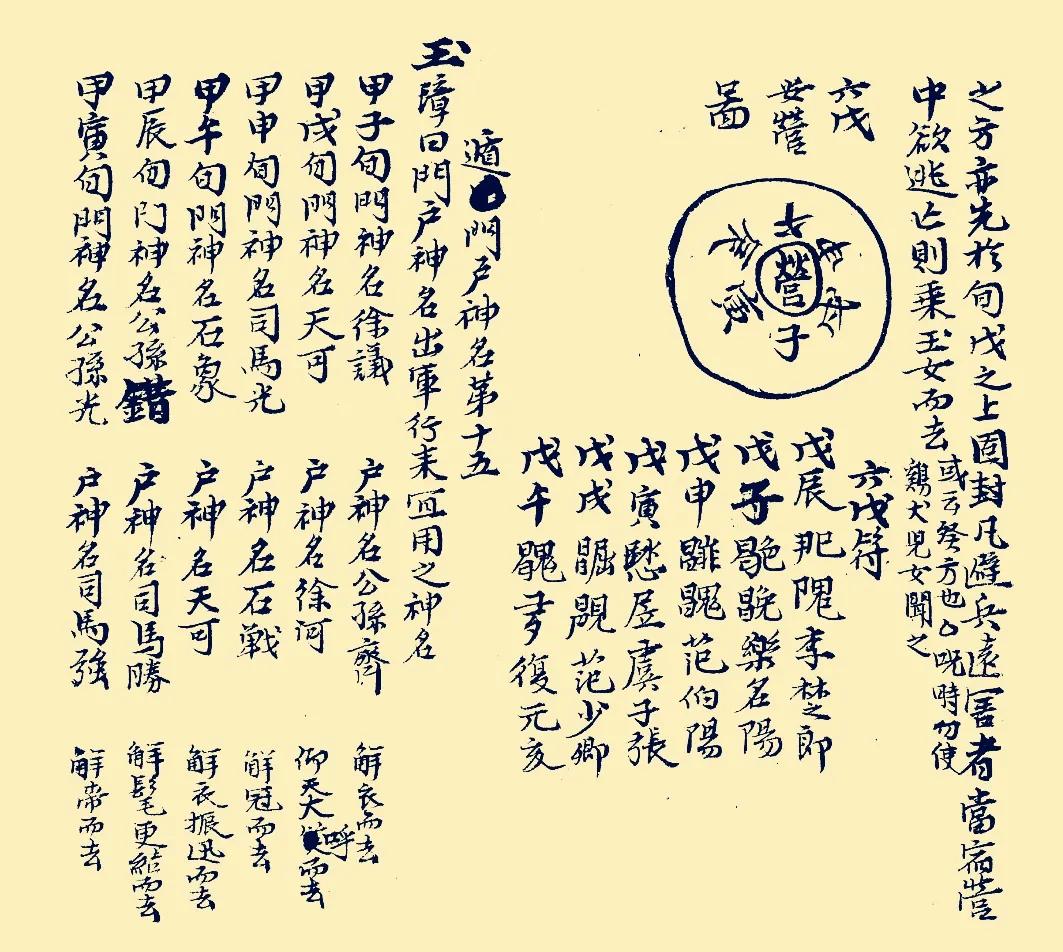 之方亦先於旬戊之上固封凡避兵遠害者當宿營
中欲逃亡則乘玉女而去
或云癸方也呪時勿使
鷄犬兒女聞之
六戊
安營
啚
營
子
寅
六戊符
戊辰 隗李楚郎
戊子 樂名陽
戊申 范伯陽
戊寅 虞子張
戊戌 范少卿
戊午 復元亥
遁門戶神名第十五
玉障曰門戶神名出軍行来宜用之神名
甲子旬門神名徐議 戶神名公孫齊 解衣而去
甲戌旬門神名天可 戶神名徐河 仰天大呼而去
甲申旬門神名司馬光 戶神名石戰 解冠而去
甲午旬門神名石象 戶神名天可 解衣振迅而去
甲辰旬门神名公孫錯 戶神名司馬勝 解髦更結而去
甲寅旬門神名公孫光 戶神名司馬強 解帶而去